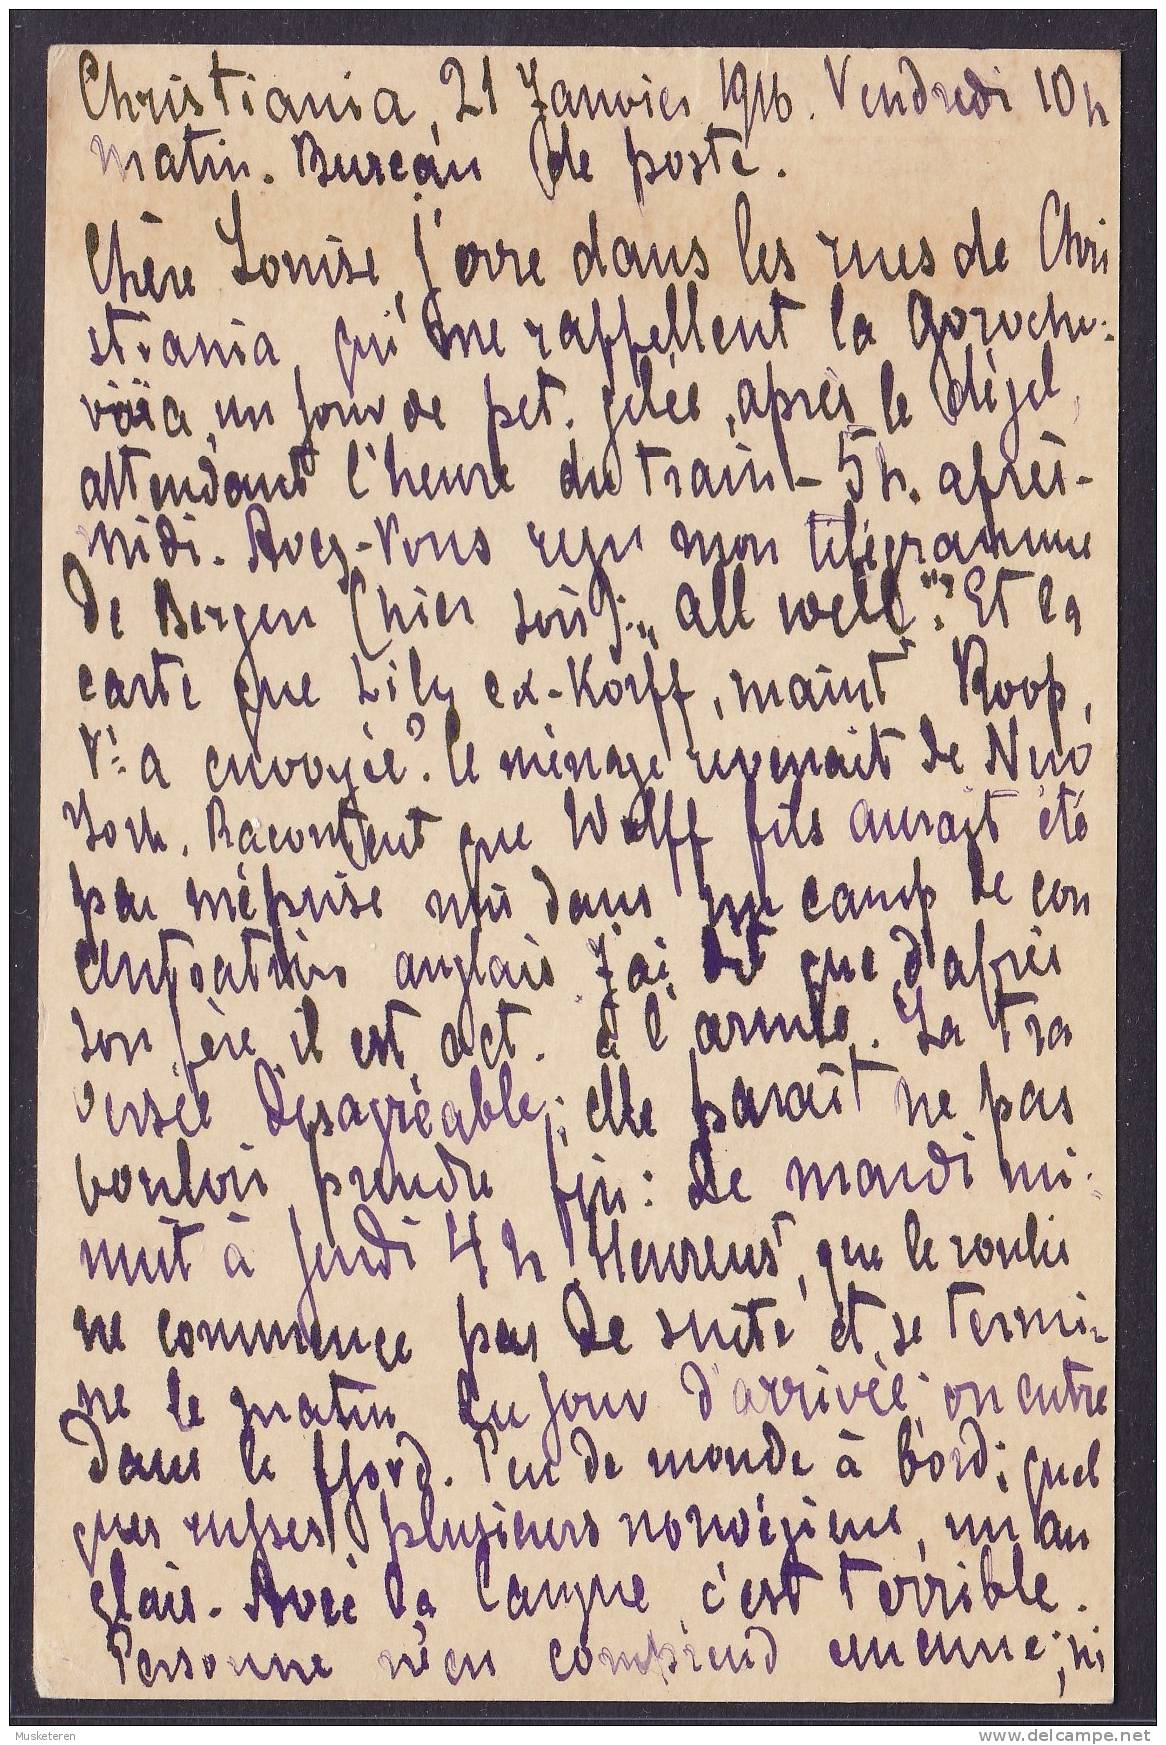 Christiania, 21 Janvier 1916. Vendredi 10 h
matin. Bureau de poste.
Chère Louise, j'erre dans les rues de Chri
stiania, qui me rappellent la Gorocho-
vaïa, un jour de pet. gelée, après le dégel,
attendant l'heure du train - 5 h. après-
midi. Avez-Vous reçu mon télégramme
de Bergen (hier soir): „All well"? Et la
carte que Lily ex-Korff, maint Roop,
Vs a envoyée? Le ménage revenait de New
York. Racontent que Wolff fils aurait été
par méprise mis dans un camp de con
centration anglais. J'ai dit que d'après
son père il est act. à l'armée. La tra
versée désagréable; elle paraît ne pas
vouloir prendre fin: de mardi mi-
nuit à jeudi 4 h. Heureust, que le roulis
ne commence pas de suite et se termi-
ne le matin du jour d'arrivée; on entre
dans le fjord. Peu de monde à bord; quel
ques russes, plusieurs norvégiens, un an
glais. Avec la langue, c'est terrible.
Personne n'en comprend aucune; ni
Musketeren
delcampe.net